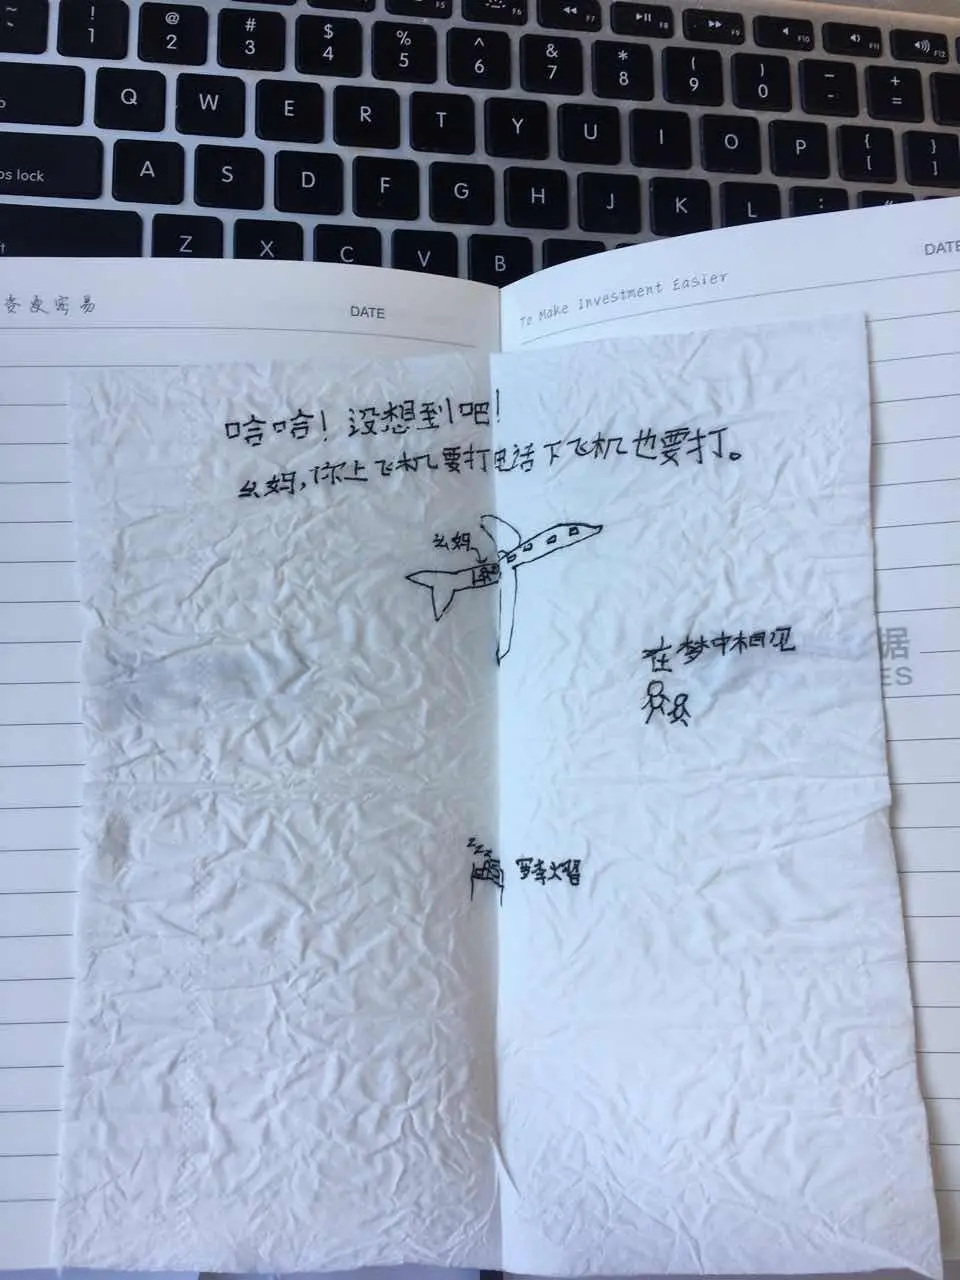 ! 1
@ 2
# 3
$ 4
% 5
^ 6
& 7
* 8
( 9
) 0
- 
+ =
F5 F6 F7 F8 F9 F10 F11 F12
Q W E R T Y U I O P { [ } ]
ps lock A S D F G H J K L :
Z X C V B
变更容易
DATE
To Make Investment Easier
DATE
哈哈！没想到吧！
幺妈，你上飞机要打电话下飞机也要打。
幺妈
在梦中相见
据
ES
zzz